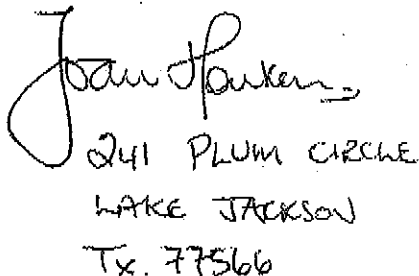 Joan
241 PLUM CIRCLE
LAKE JACKSON
Tx. 77566